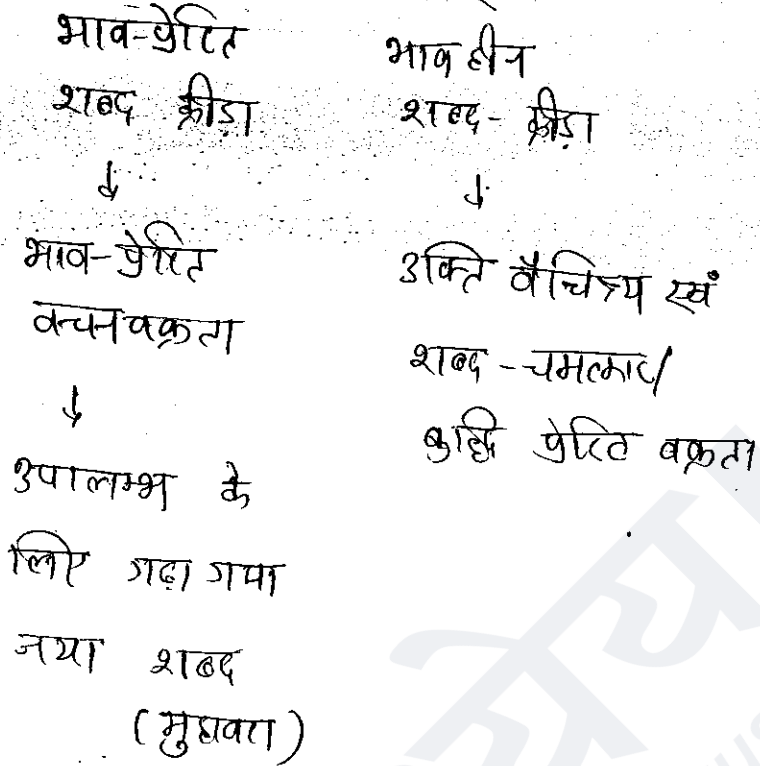 भाव-प्रेरित
शब्द क्रीड़ा
↓
भाव-प्रेरित
वचनवक्रता
↓
उपालम्भ के
लिए गढ़ा गया
नया शब्द
(मुहावरा)
भाव हीन
शब्द-क्रीड़ा
↓
उक्ति वैचित्र्य एवं
शब्द-चमत्कार/
बुद्धि प्रेरित वक्रता